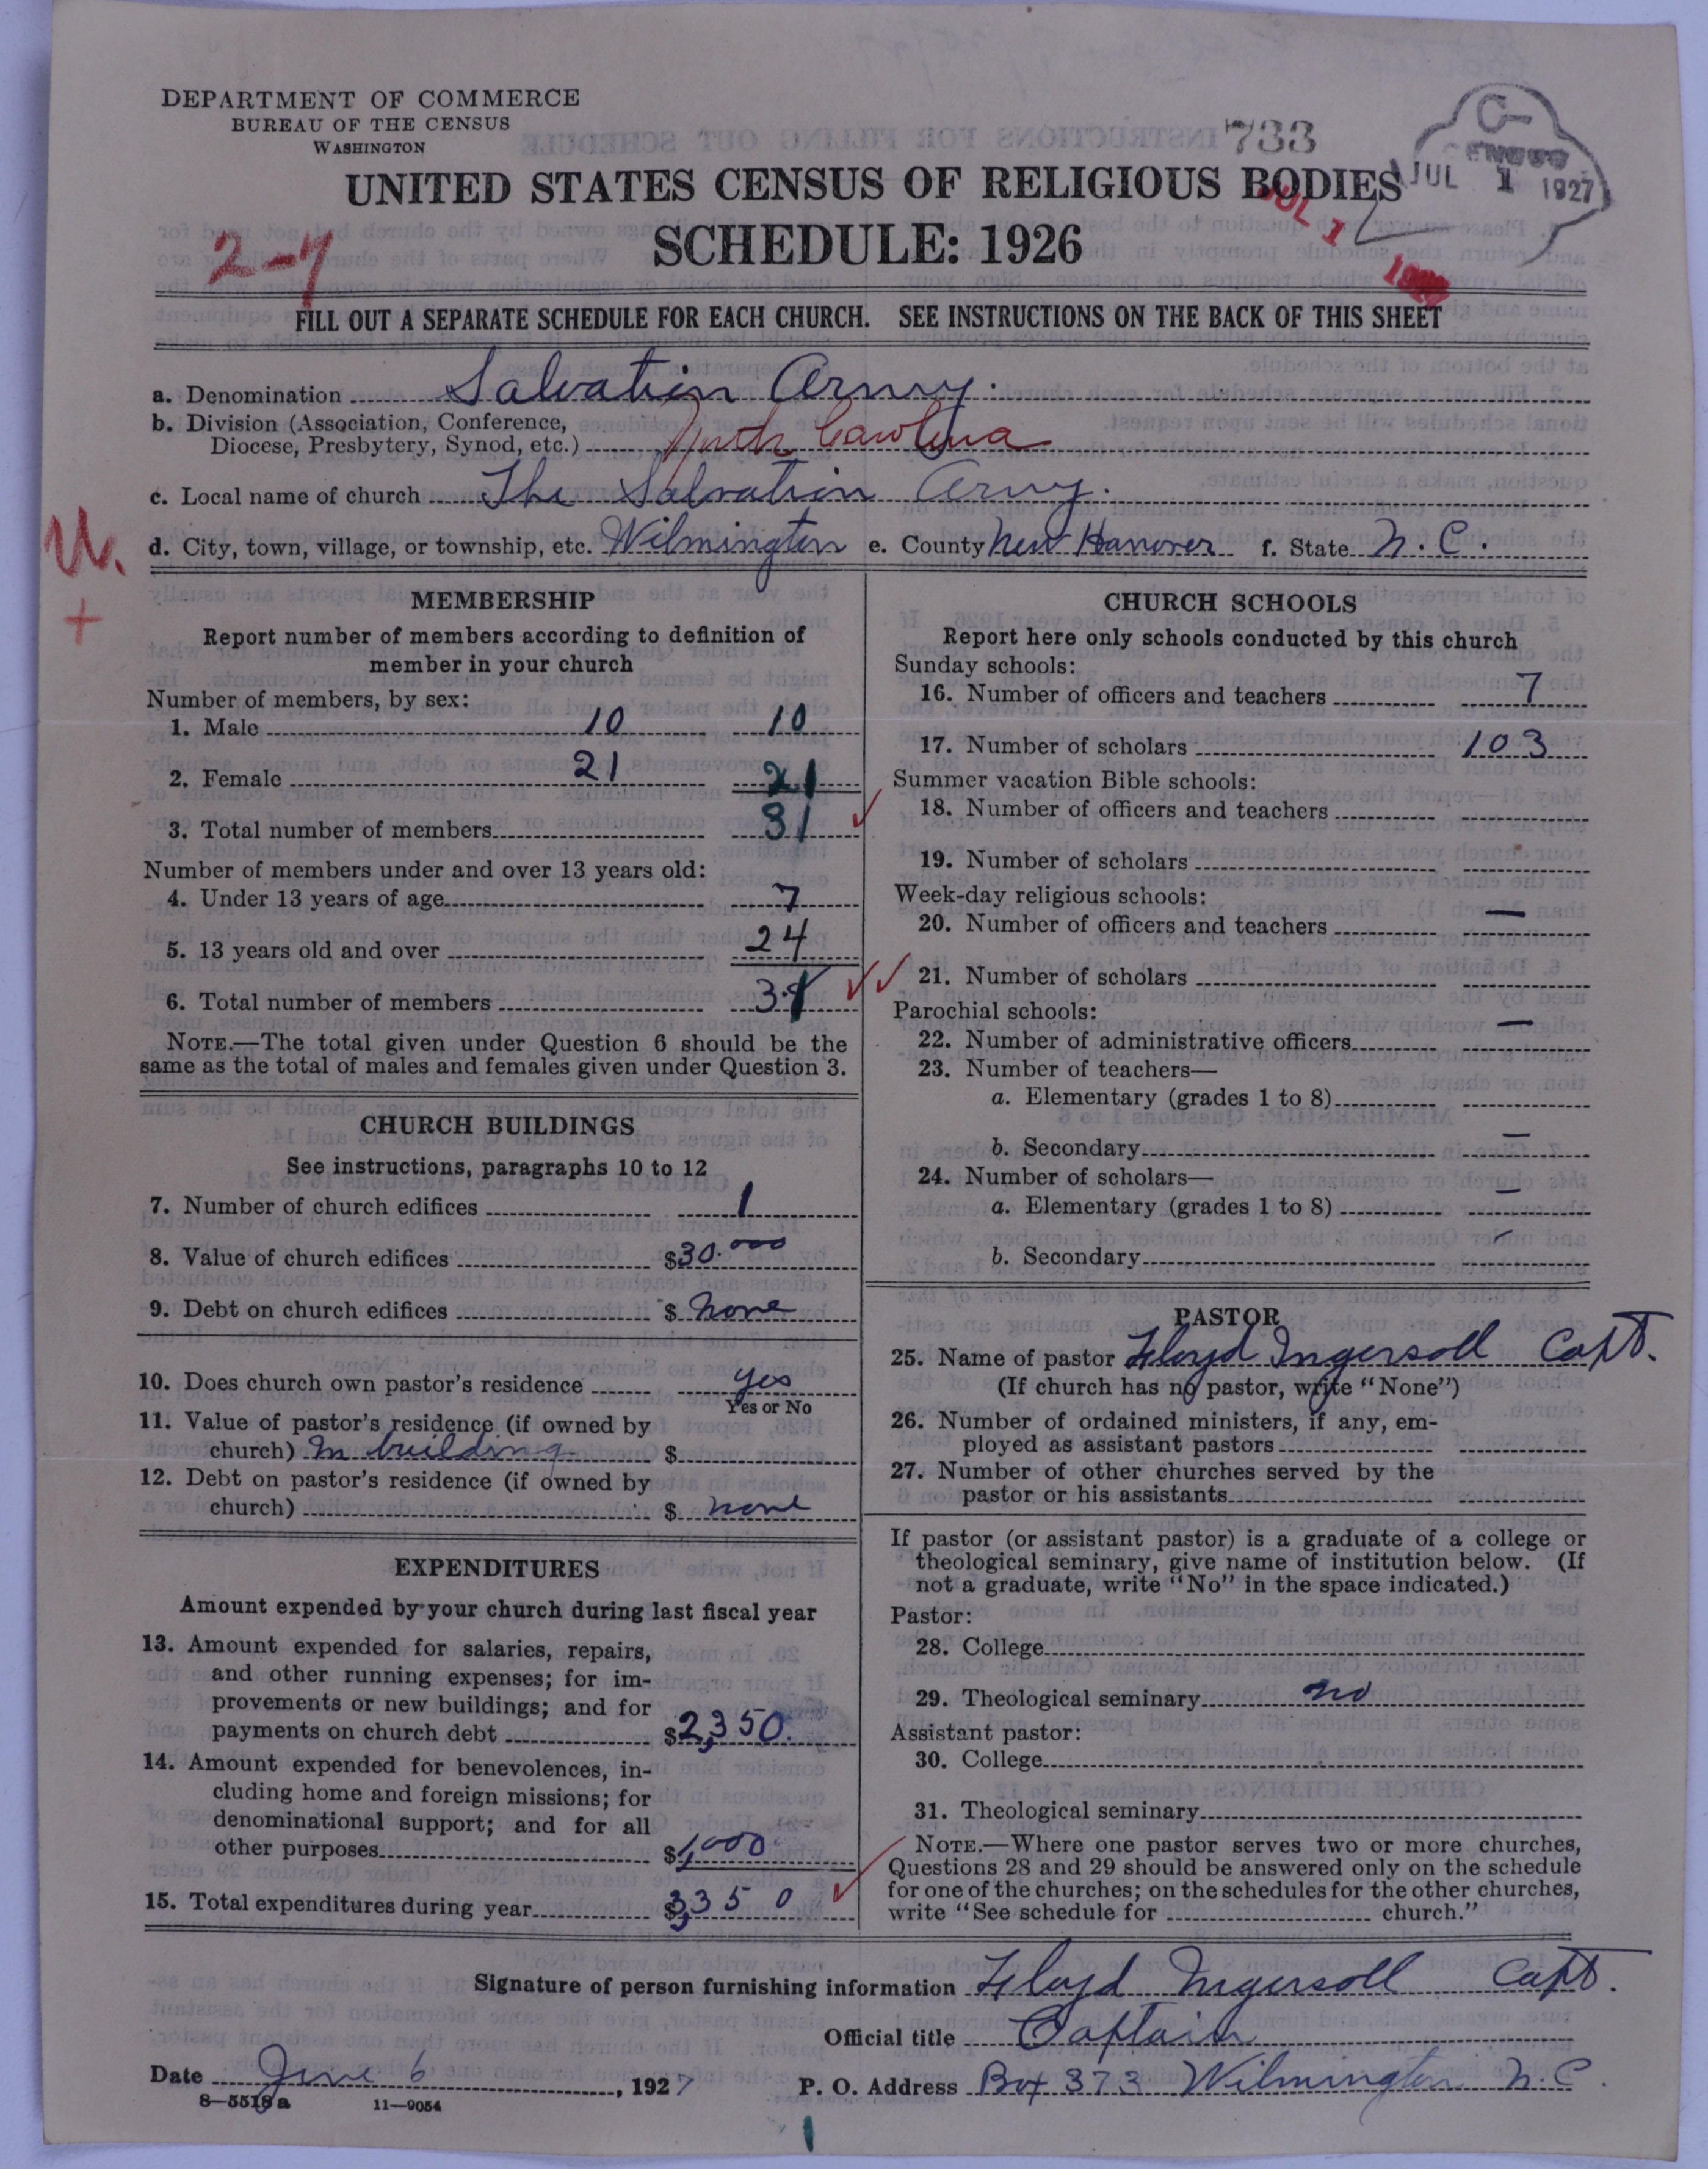 DEPARTMENT OF COMMERCE
BUREAU OF THE CENSUS
WASHINGTON
733
CENSUS
JUL 1 1927
UNITED STATES CENSUS OF RELIGIOUS BODIES
JUL 1
SCHEDULE: 1926
2-7
FILL OUT A SEPARATE SCHEDULE FOR EACH CHURCH. SEE INSTRUCTIONS ON THE BACK OF THIS SHEET
a. Denomination Salvation Army.
b. Division (Association, Conference,
Diocese, Presbytery, Synod, etc.) North Carolina
c. Local name of church The Salvation Army.
d. City, town, village, or township, etc. Wilmington e. County New Hanover f. State N. C.
U.
+
MEMBERSHIP
Report number of members according to definition of
member in your church
Number of members, by sex:
1. Male 10 10
2. Female 21 21
3. Total number of members 31
Number of members under and over 13 years old:
4. Under 13 years of age 7
5. 13 years old and over 24
6. Total number of members 31
NOTE.—The total given under Question 6 should be the
same as the total of males and females given under Question 3.
CHURCH BUILDINGS
See instructions, paragraphs 10 to 12
7. Number of church edifices 1
8. Value of church edifices $30.000
9. Debt on church edifices $ None
10. Does church own pastor's residence yes
Yes or No
11. Value of pastor's residence (if owned by
church) In building $
12. Debt on pastor's residence (if owned by
church) $ none
EXPENDITURES
Amount expended by your church during last fiscal year
13. Amount expended for salaries, repairs,
and other running expenses; for im-
provements or new buildings; and for
payments on church debt $2,350.
14. Amount expended for benevolences, in-
cluding home and foreign missions; for
denominational support; and for all
other purposes $1,000
15. Total expenditures during year $3,350
CHURCH SCHOOLS
Report here only schools conducted by this church
Sunday schools:
16. Number of officers and teachers 7
17. Number of scholars 103
Summer vacation Bible schools:
18. Number of officers and teachers
19. Number of scholars
Week-day religious schools:
20. Number of officers and teachers —
21. Number of scholars
Parochial schools:
22. Number of administrative officers —
23. Number of teachers—
a. Elementary (grades 1 to 8)
b. Secondary —
24. Number of scholars—
a. Elementary (grades 1 to 8) —
b. Secondary —
PASTOR
25. Name of pastor Floyd Ingersoll Capt.
(If church has no pastor, write "None")
26. Number of ordained ministers, if any, em-
ployed as assistant pastors
27. Number of other churches served by the
pastor or his assistants
If pastor (or assistant pastor) is a graduate of a college or
theological seminary, give name of institution below. (If
not a graduate, write "No" in the space indicated.)
Pastor:
28. College
29. Theological seminary No
Assistant pastor:
30. College
31. Theological seminary
NOTE.—Where one pastor serves two or more churches,
Questions 28 and 29 should be answered only on the schedule
for one of the churches; on the schedules for the other churches,
write "See schedule for church."
Signature of person furnishing information Floyd Ingersoll Capt.
Official title Captain
Date June 6, 1927 P. O. Address Box 373 Wilmington N.C.
8—5518a 11—9054
1